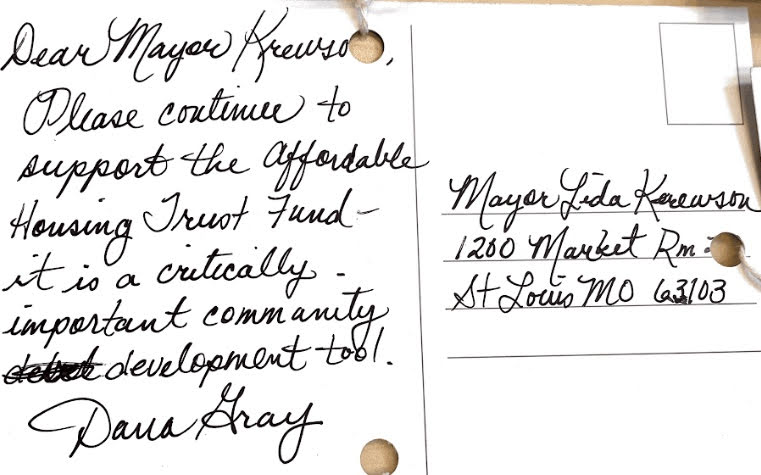 Dear Mayor Krewson,
Please continue to
support the Affordable
Housing Trust Fund –
it is a critically -
important community
development tool.
Dana Gray
Mayor Lida Kerewson
1200 Market Rm
St Louis MO 63103